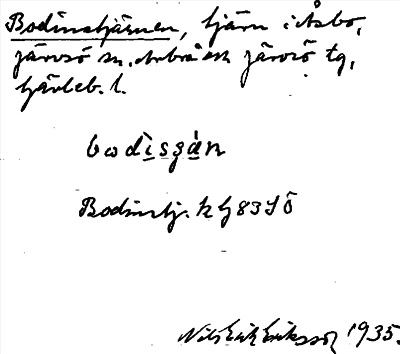 Bodinstjärnen, tjärn i Åsbo,
Järvsö sn, Arbrå och Järvsö tg,
Gävleb. l.
bodìsʒàn
Bodinstj. k G 83 SÖ
Nils Erik Eriksson 1935.